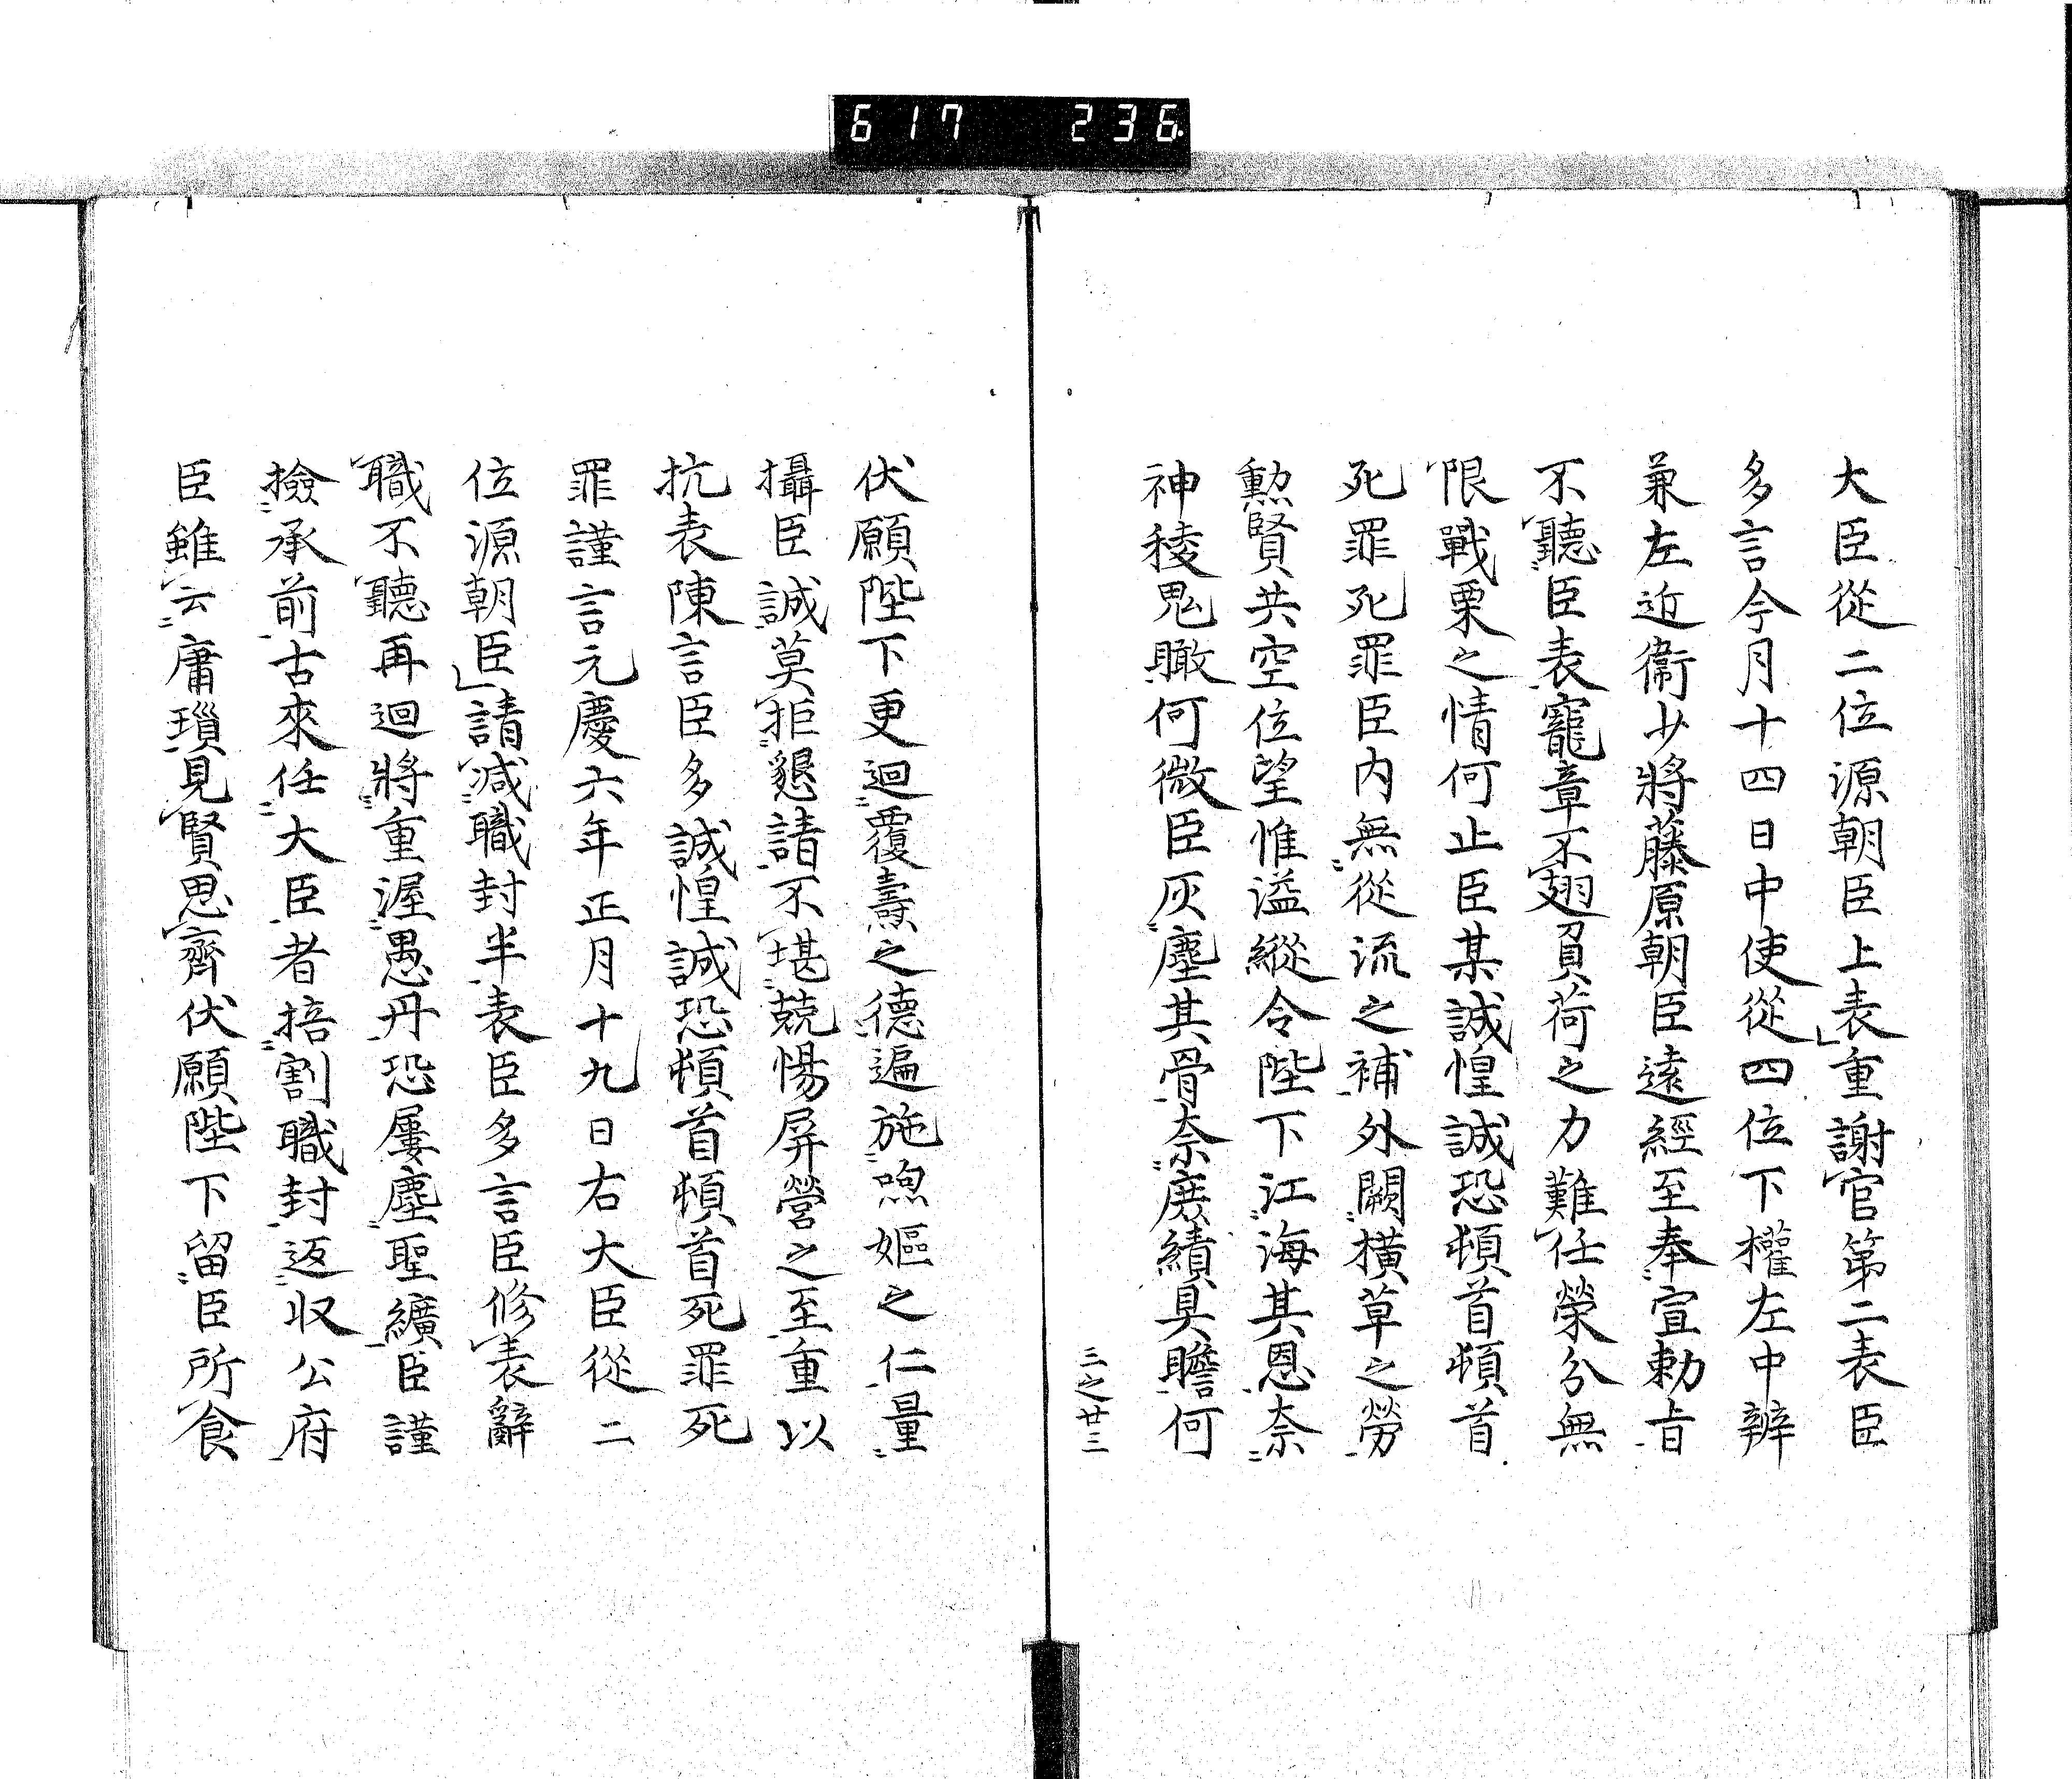 617 236
大臣從二位源朝臣上表重謝官第二表臣
多言今月十四日中使從四位下權左中辨
兼左近衞少將藤原朝臣遠經至奉宣勅㫖
不聽臣表寵章不翅負荷之力難任榮分無
限戰栗之情何止臣某誠惶誠恐頓首頓首
死罪死罪臣内無從流之補外闕横草之勞
勲賢共空位望惟溢縱令陛下江海其恩奈
神稜鬼瞰何微臣灰塵其骨奈庶績具瞻何
三之廿三
伏願陛下更迴覆燾之德遍施喣嫗之仁量
攝臣誠莫拒懇請不堪兢惕屏營之至重以
抗表陳言臣多誠惶誠恐頓首頓首死罪死
罪謹言元慶六年正月十九日右大臣從二
位源朝臣請减職封半表臣多言臣修表辭
職不聽再迴將重渥愚丹恐屢塵聖纊臣謹
撿承前古來任大臣者掊割職封返収公府
臣雖云庸瑣見賢思齊伏願陛下留臣所食